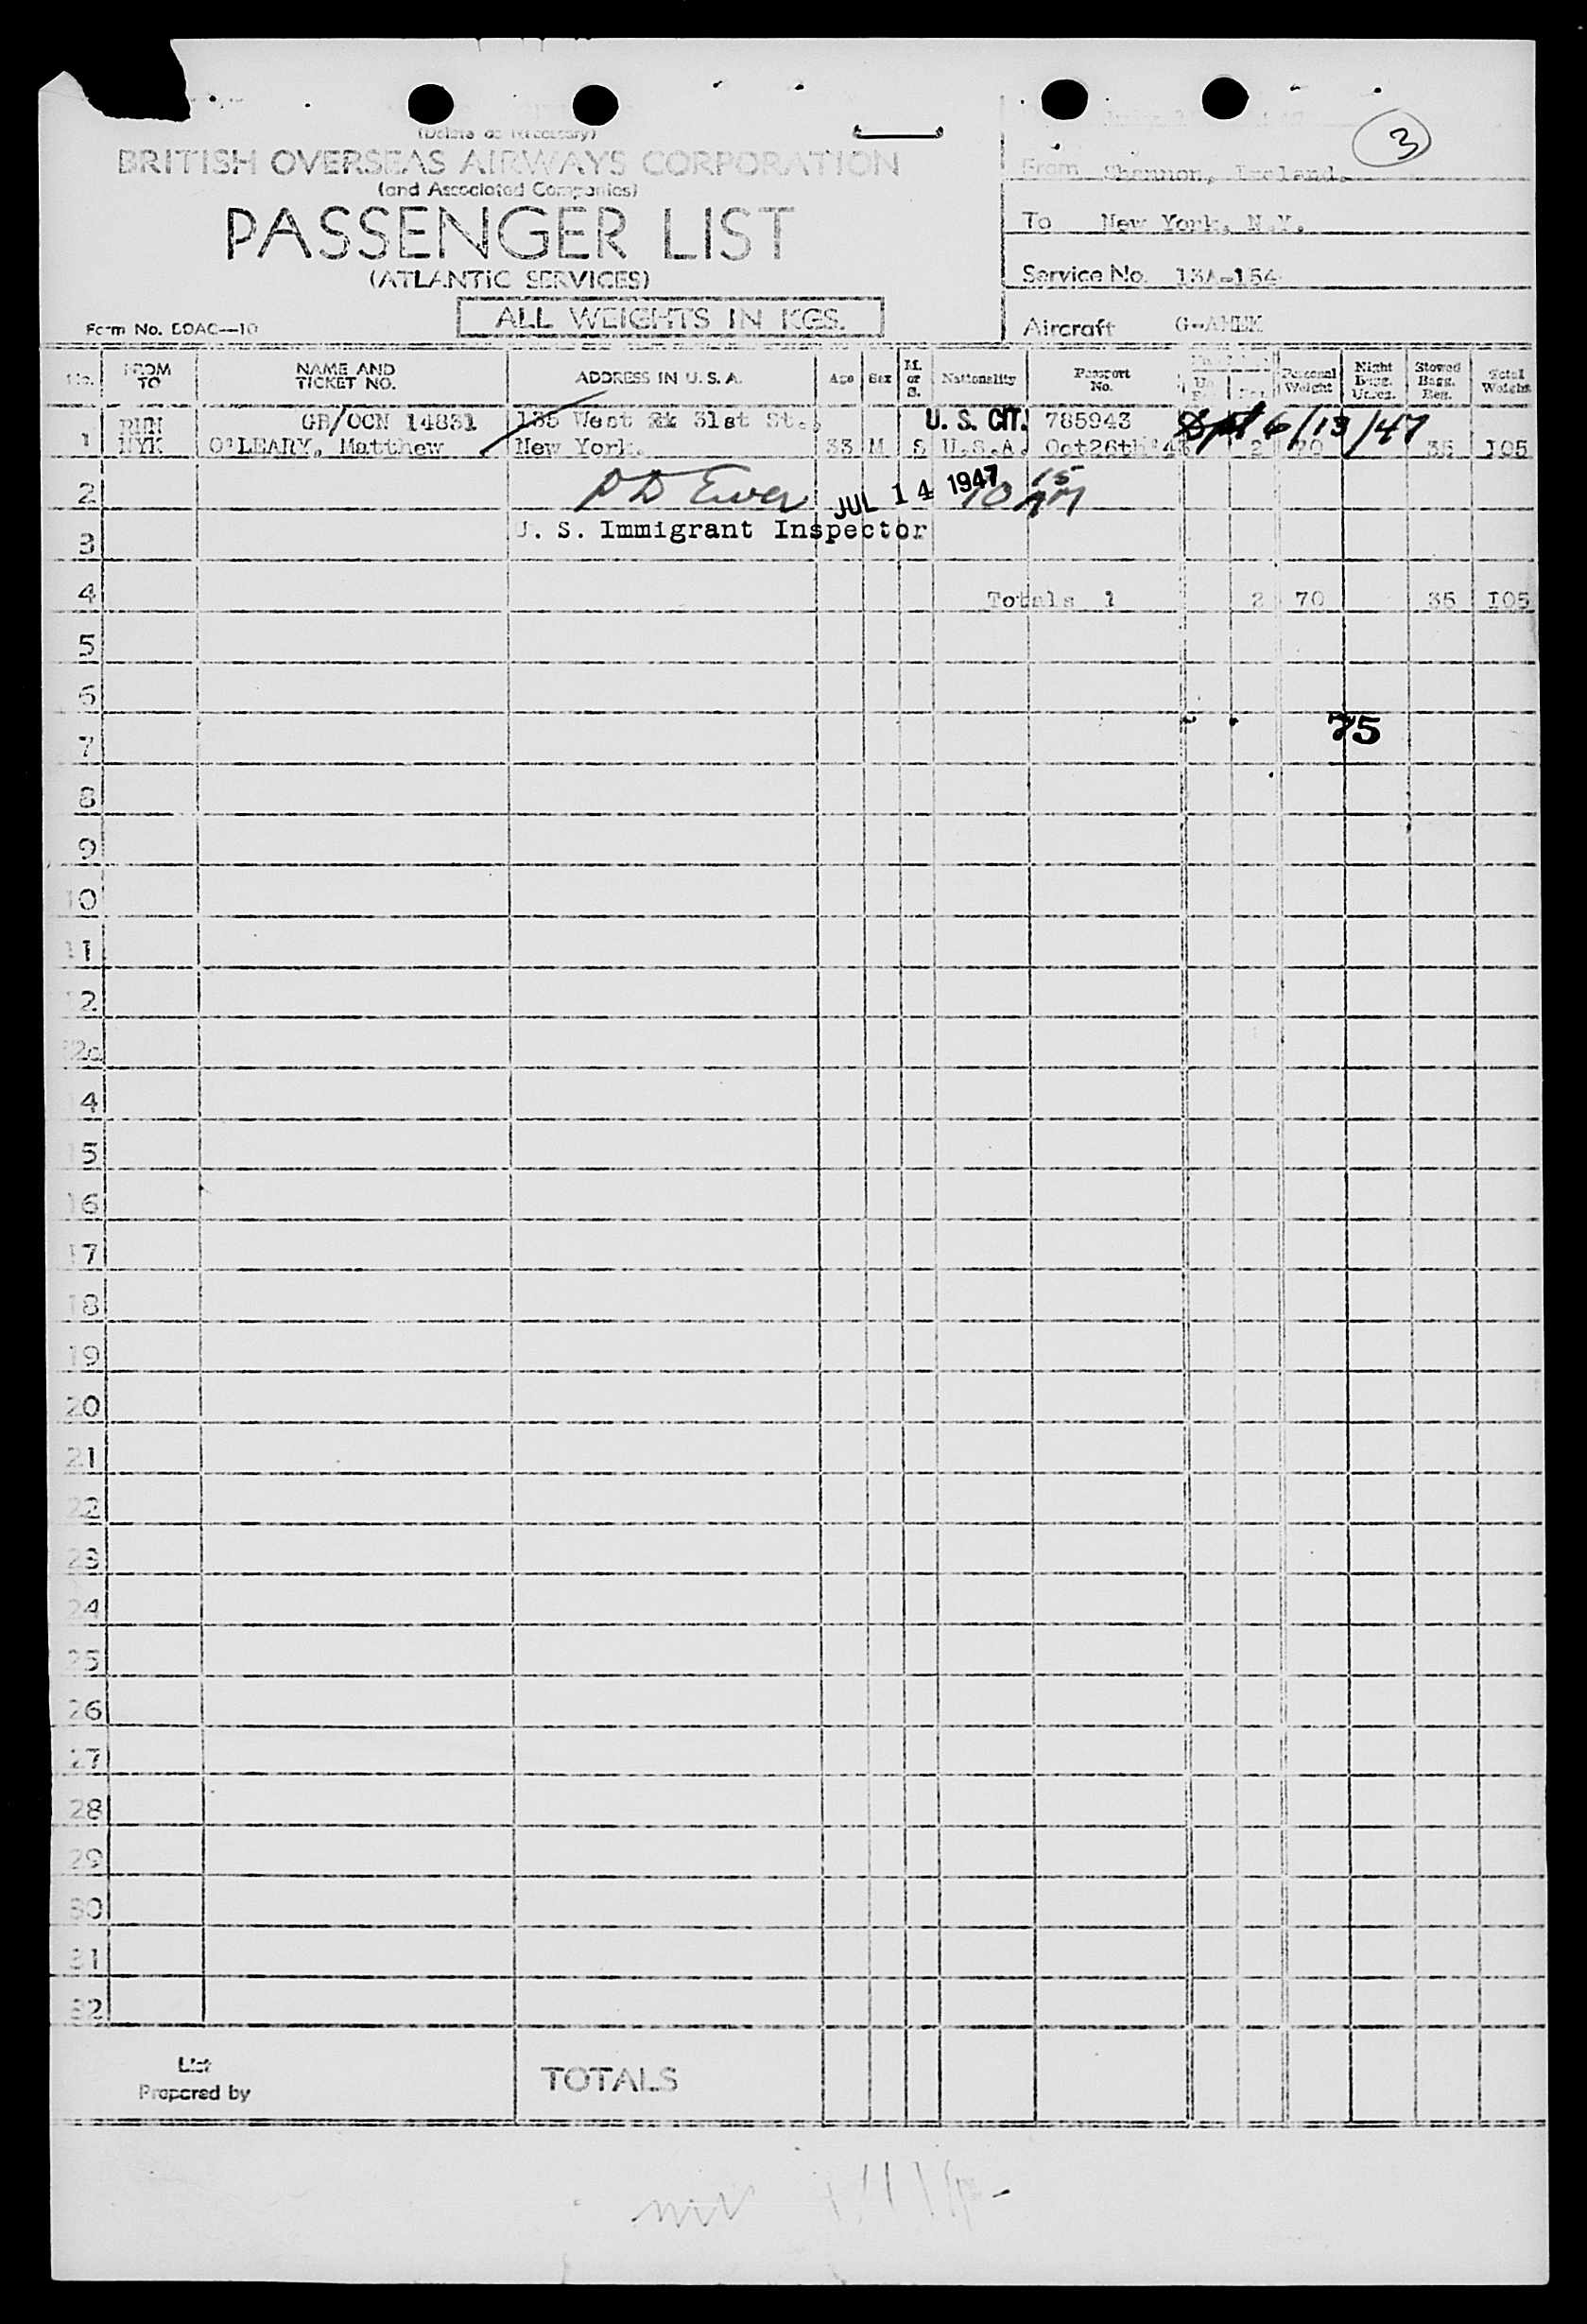 (Delete as Necessary)
BRITISH OVERSEAS AIRWAYS CORPORATION
(and Associated Companies)
PASSENGER LIST
(ATLANTIC SERVICES)
ALL WEIGHTS IN KGS.
Form No. BOAC—10
3
From Shannon, Ireland.
To New York, N.Y.
Service No. 13A-154
Aircraft
No. FROM TO NAME AND TICKET NO. ADDRESS IN U. S. A. Age Sex M. or S. Nationality Passport No. Personal Weight Night Bagg. Stowed Bagg. Total Weight
GB/OCN 14831 135 West 31st St., U. S. CIT. 785943 6/13/47
1 NYK O'LEARY, Matthew New York. 33 M S U.S.A. Oct26th 2 70 35 105
2 JUL 14 1947 10 15 AM
U. S. Immigrant Inspector
3
4 Totals 1 2 70 35 105
5
6
75
7
8
9
10
11
12
12a
14
15
16
17
18
19
20
21
22
23
24
25
26
27
28
29
30
31
32
List
Prepared by
TOTALS